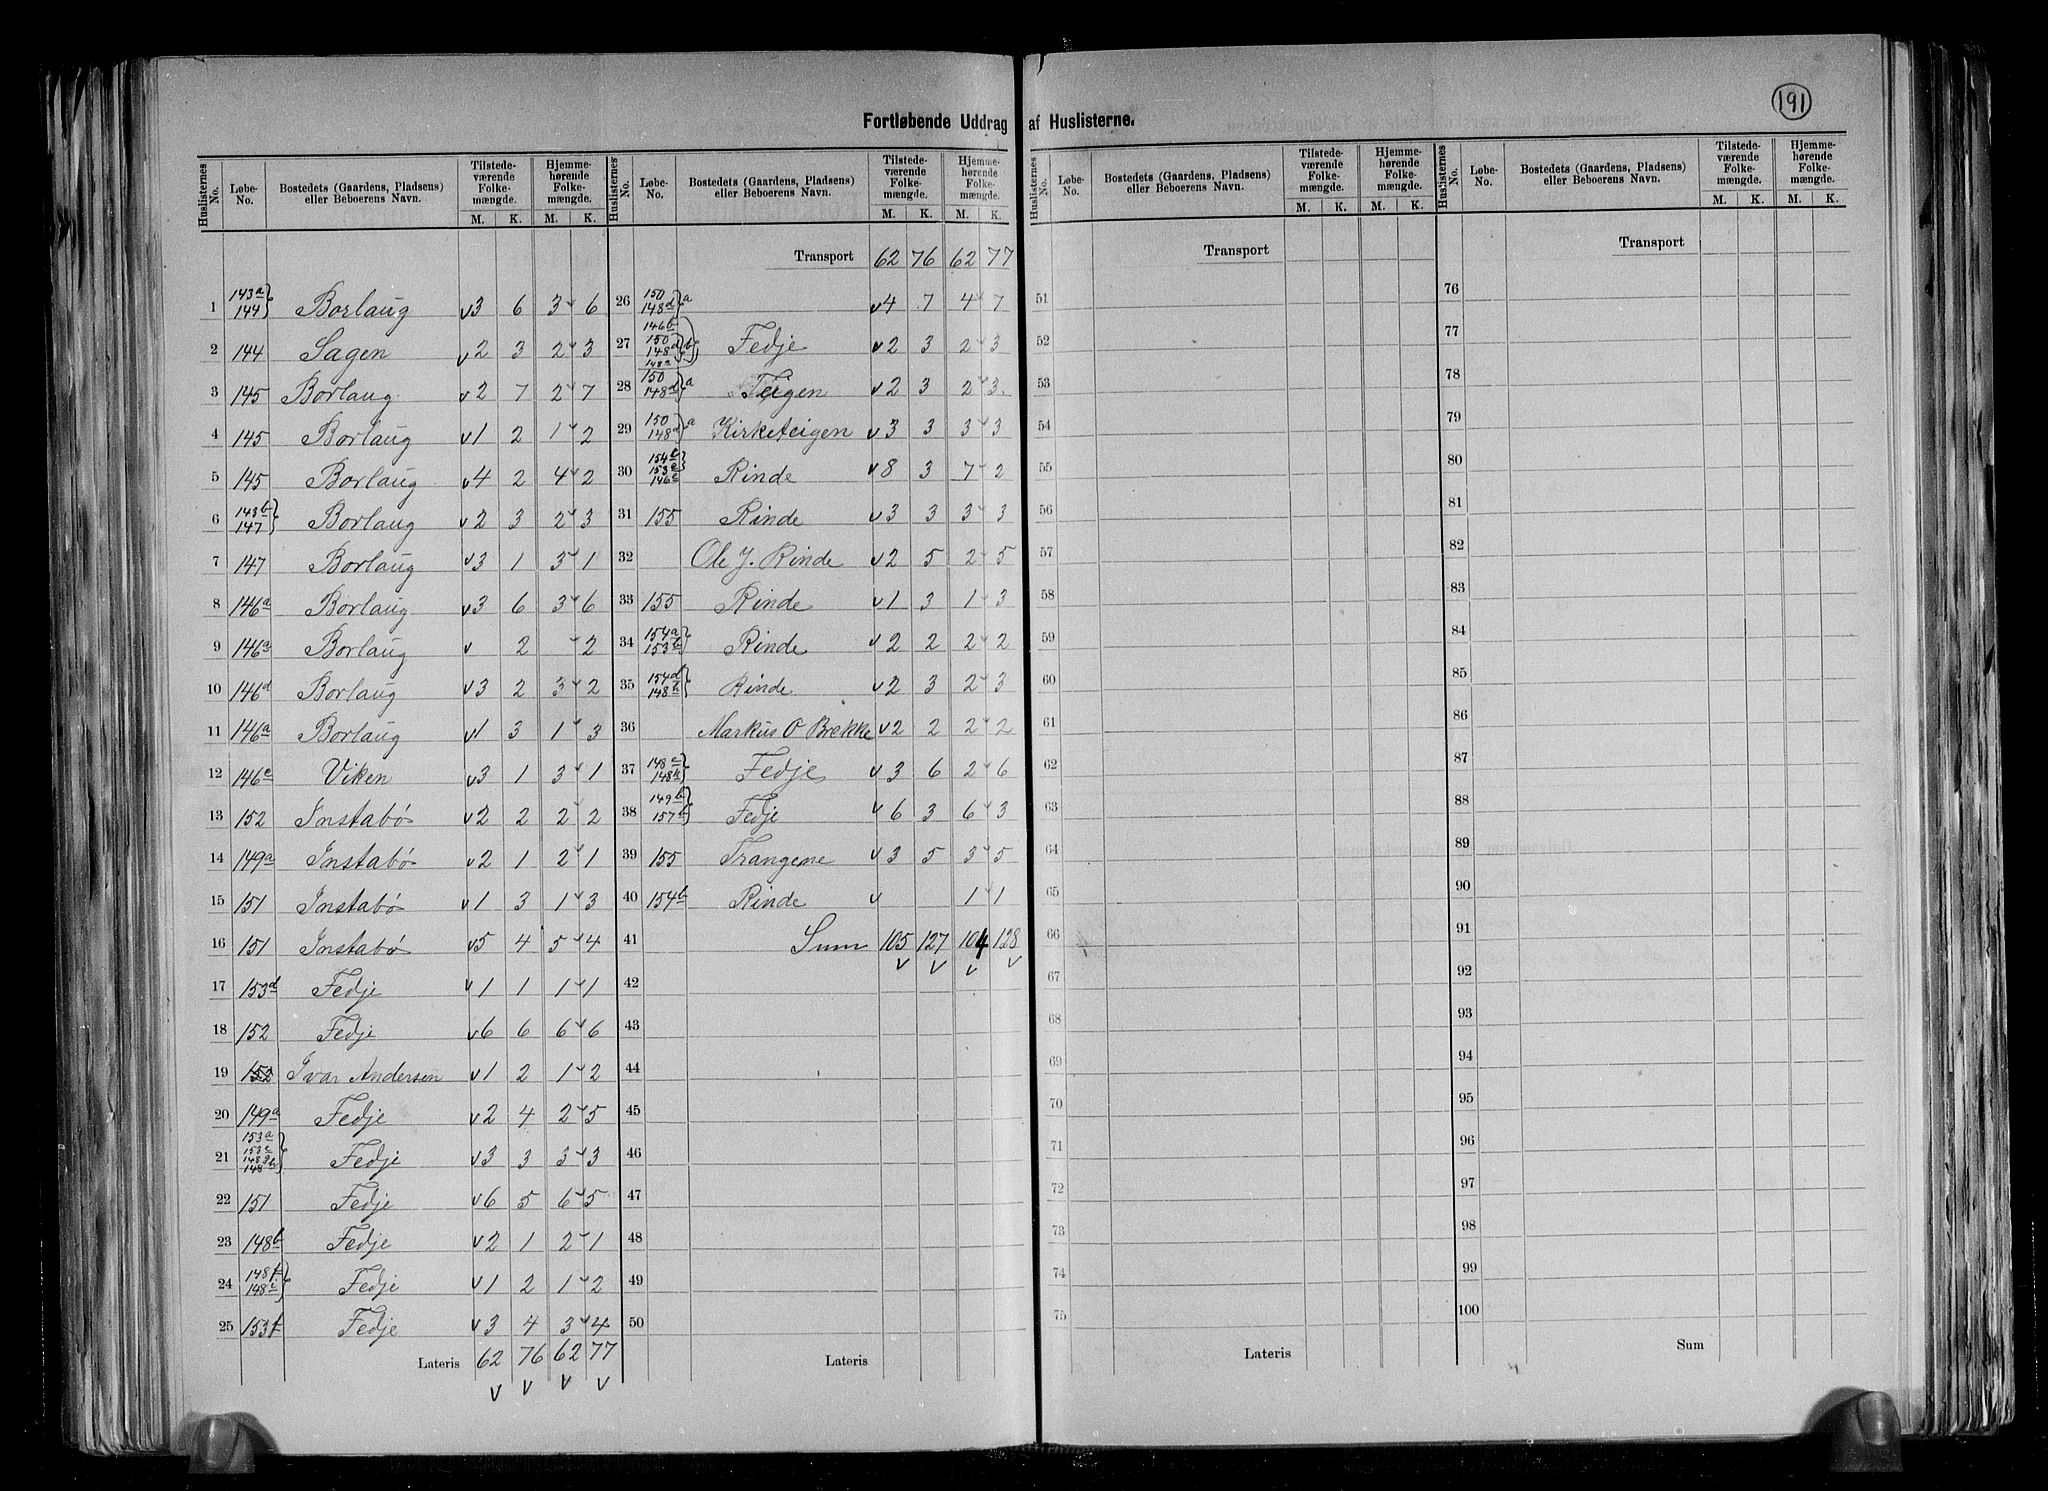 191
Fortløbende Uddrag af Huslisterne.
Huslisternes No. Løbe-No. Bostedets (Gaardens, Pladsens) eller Beboerens Navn. Tilstedeværende Folkemængde. M. K. Hjemmehørende Folkemængde. M. K.
1 143a 144 } Borlaug v3 6 3 6
2 144 Sagen v2 3 2 3
3 145 Borlaug v2 7 2 7
4 145 Borlaug v1 2 1 2
5 145 Borlaug v4 2 4 2
6 143b 147 } Borlaug v2 3 2 3
7 147 Borlaug v3 1 3 1
8 146a Borlaug v3 6 3 6
9 146a Borlaug v 2 2
10 146d Borlaug v3 2 3 2
11 146a Borlaug v1 3 1 3
12 146e Viken v3 1 3 1
13 152 Instabø v2 2 2 2
14 149a Instabø v2 1 2 1
15 151 Instabø v1 3 1 3
16 151 Instabø v5 4 5 4
17 153d Fedje v1 1 1 1
18 152 Fedje v6 6 6 6
19 152 Ivar Andersen v1 2 1 2
20 149a Fedje v2 4 2 5
21 153a 153c 148g 148h } Fedje v3 3 3 3
22 151 Fedje v6 5 6 5
23 148b Fedje v2 1 2 1
24 148f 148i } Fedje v1 2 1 2
25 153f Fedje v3 4 3 4
Lateris 62 76 62 77
v v v v
Huslisternes No. Løbe-No. Bostedets (Gaardens, Pladsens) eller Beboerens Navn. Tilstedeværende Folkemængde. M. K. Hjemmehørende Folkemængde. M. K.
Transport 62 76 62 77
26 150 148d } a v4 7 4 7
27 146b 150 148d } b 148a Fedje v2 3 2 3
28 150 148d } a Teigen v2 3 2 3
29 150 148d } a Kirketeigen v3 3 3 3
30 154c 153e 146c } Rinde v8 3 7 2
31 155 Rinde v3 3 3 3
32 Ole J. Rinde v2 5 2 5
33 155 Rinde v1 3 1 3
34 154a 153b } Rinde v2 2 2 2
35 154d 148h } Rinde v2 3 2 3
36 Markus O Brekke v2 2 2 2
37 148e 148k } Fedje v3 6 2 6
38 149b 157b } Fedje v6 3 6 3
39 155 Trangene v3 5 3 5
40 154b Rinde v 1 1
41 Sum 105 127 104 128
v v v v
42
43
44
45
46
47
48
49
50
Lateris
Huslisternes No. Løbe-No. Bostedets (Gaardens, Pladsens) eller Beboerens Navn. Tilstedeværende Folkemængde. M. K. Hjemmehørende Folkemængde. M. K.
Transport
51
52
53
54
55
56
57
58
59
60
61
62
63
64
65
66
67
68
69
70
71
72
73
74
75
Lateris
Huslisternes No. Løbe-No. Bostedets (Gaardens, Pladsens) eller Beboerens Navn. Tilstedeværende Folkemængde. M. K. Hjemmehørende Folkemængde. M. K.
Transport
76
77
78
79
80
81
82
83
84
85
86
87
88
89
90
91
92
93
94
95
96
97
98
99
100
Sum